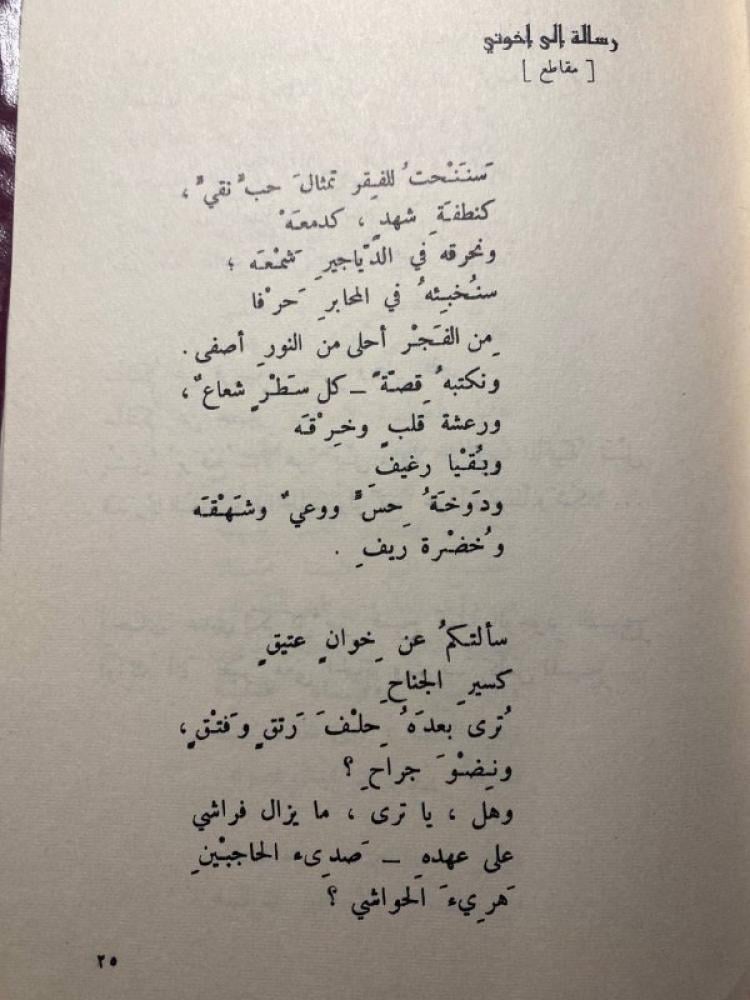 رسالة إلى إخوتي
[ مقاطع ]
سَنَنْحتُ للفِقر تمثالَ حبٍّ نقيٍّ ،
كنطفَةِ شهدٍ ، كدمعَهْ
ونحرقه في الدّياجيرِ شَمْعَه ؛
سنُخبِئهُ في المحابرِ حَرْفا
مِن الفَجْر أحلى من النورِ أصفى .
ونكتبهُ قِصّةً ــ كل سَطْرٍ شعاعٌ ،
ورعشة قلبٍ وخِرْقَه
وبُقْيا رغيفِ
ودَوخَةُ حِسٍّ ووعيٌ وشَهْقَه
وخُضْرة ريفِ .
سألتكمُ عن خِوانٍ عتيقٍ
كسيرِ الجناحِ
تُرى بعدَهُ حِلْفَ رَتقٍ وفَتْقٍ ،
ونِضْوَ جراحِ ؟
وهل ، يا ترى ، ما يزال فراشي
على عهدهِ ــ صَدِىء الحاجبْينِ
هَرِيءَ الحواشي ؟
٢٥